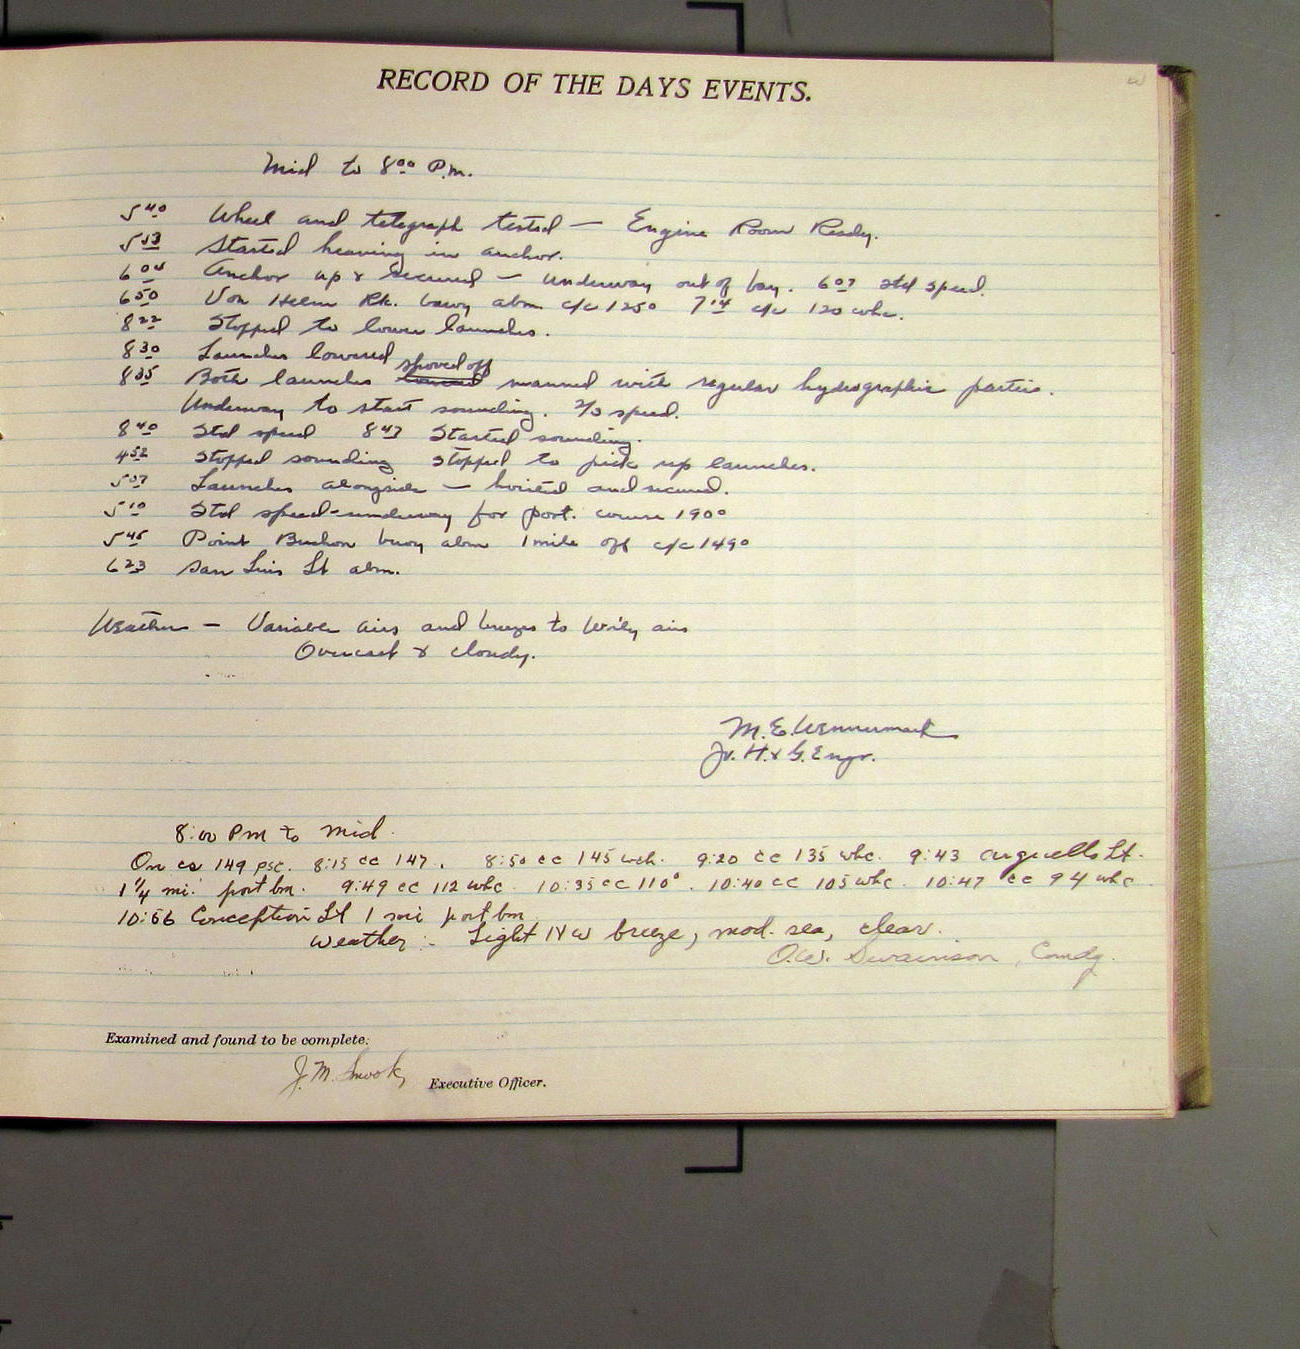 RECORD OF THE DAYS EVENTS.
Mid to 8⁰⁰ P.m.
5⁴⁰ Wheel and telegraph tested — Engine Room Ready.
5⁵³ Started heaving in anchor.
6⁰⁴ Anchor up & secured — underway out of bay. 6⁰⁷ std speed.
6⁵⁰ Von Helm Rk. buoy abm c/c 125° 7¹⁴ c/c 120 whc.
8²² Stopped to lower launches.
8³⁰ Launches lowered
8³⁵ Both launches shoved off manned with regular hydrographic parties.
Underway to start sounding. 2/3 speed.
8⁴⁰ Std speed 8⁴³ Started sounding.
4⁵² Stopped sounding stopped to pick up launches.
5⁰⁷ Launches alongside — hoisted and secured.
5¹⁰ Std speed - underway for port. course 190°
5⁴⁵ Point Buchon buoy abm 1 mile off c/c 149°
6²³ San Luis Lt abm.
Weather — Variable airs and breezes to W'rly airs
Overcast & cloudy.
M. E. Wennermark
Jr. H. & G. Engr.
8:00 PM to mid.
On cs 149 psc. 8:15 cc 147. 8:50 cc 145 whc. 9:20 cc 135 whc. 9:43 Arguello Lt.
1 1/4 mi. port bm. 9:49 cc 112 whc. 10:35 cc 110°. 10:40 cc 105 whc. 10:47 cc 94 whc
10:56 Conception Lt 1 mi port bm
Weather :- Light NW breeze, mod. sea, clear.
O.W. Swainson, Comdg.
Examined and found to be complete:
J. M. Smook, Executive Officer.